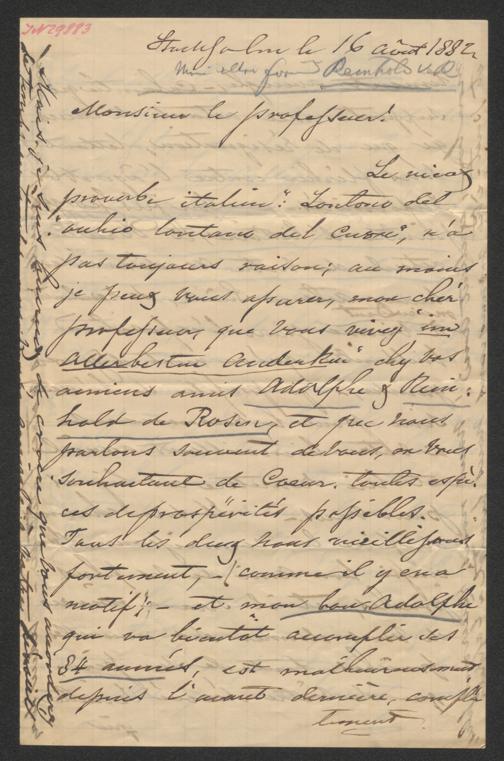 JN29883
Stockholm le 16 août 1882.
Reinhold v. R
Monsieur le professeur!
Le vieux
proverbe italien: "Lontano del
ochio lontano del Cuore", n'a
pas toujours raison; au moins
je peux vous assurer, mon cher
professeur, que vous vivez "im
allerbesten Andenken" chez vos
anciens amis Adolphe & Rein-
hold de Rosen, et que nous
parlons souvent de vous, en vous
souhaitant de Coeur toutes espè-
ces de prospérités possibles.
Tous les deux nous vieillissons
fortement, - (comme il y en a
motif); - et mon bon Adolphe
qui va bientôt accomplir ses
84 années, est malheureusement
depuis l'avant dernière, complè-
tement
Mais je suis de croire que vous